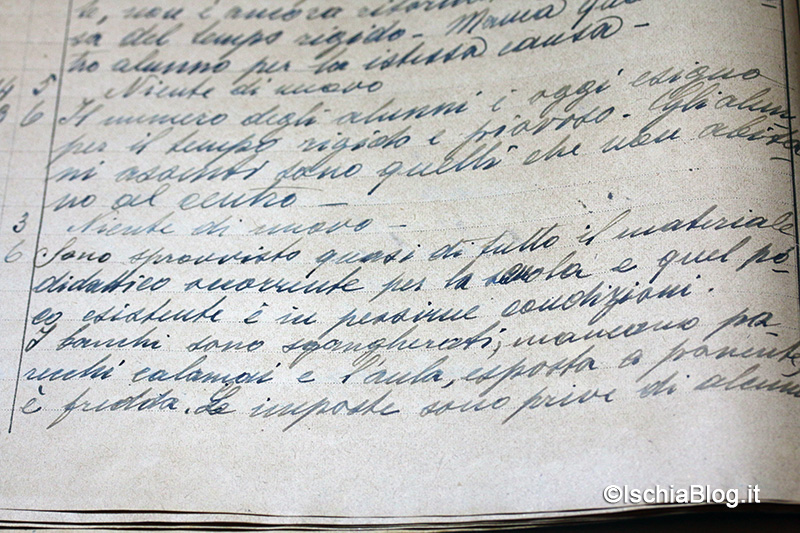 te, non è ancora
sa del tempo rigido - Manca
tro alunno per la istessa causa -
5 Niente di nuovo
6 Il numero degli alunni è oggi esiguo
per il tempo rigido e piovoso. (Gli alun-
ni assenti sono quelli che non abita-
no al centro -
3 Niente di nuovo -
6 Sono sprovvisto quasi di tutto il materiale
didattico occorrente per la scuola e quel po-
co esistente è in pessime condizioni.
I banchi sono sgangherati; mancano pa-
recchi calamai e l'aula, esposta a ponente,
è fredda. Le imposte sono prive di alcuni
©IschiaBlog.it